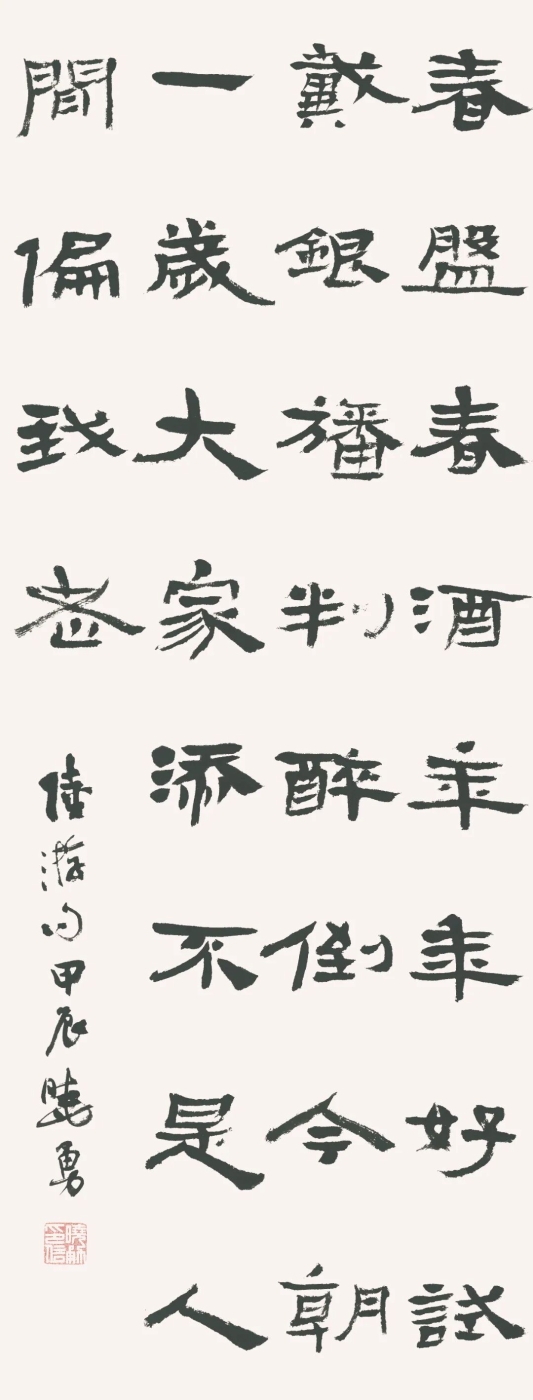 春盤春酒年年好試
戴銀旛判醉倒今朝
一歲大家添不是人
間偏我老
陸游句甲辰曉勇